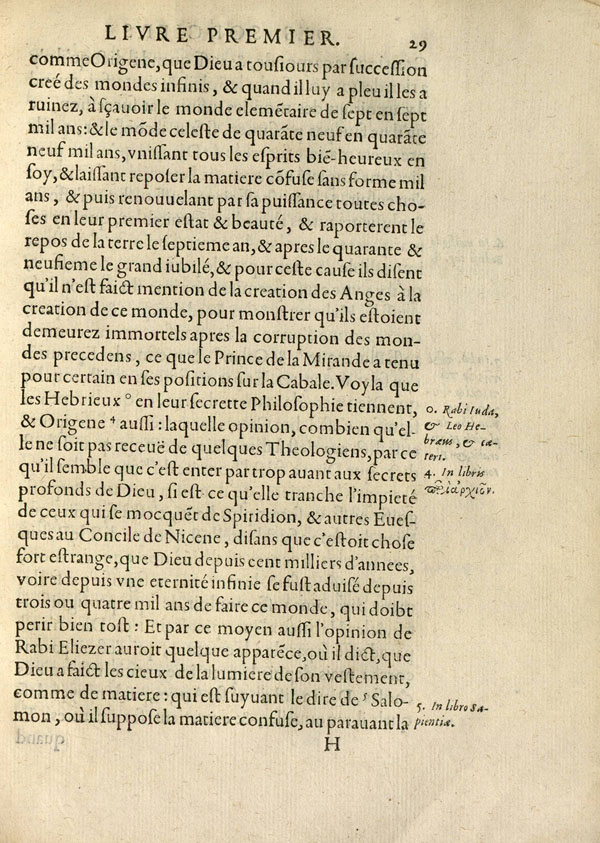 LIVRE PREMIER. 29
comme Origene, que Dieu a tousiours par succession
creé des mondes infinis, & quand il luy a pleu il les a
ruinez, à sçauoir le monde elemẽtaire de sept en sept
mil ans: & le mõde celeste de quarãte neuf en quarãte
neuf mil ans, vnissant tous les esprits biẽ-heureux en
soy, & laissant reposer la matiere cõfuse sans forme mil
ans, & puis renouuelant par sa puissance toutes cho-
ses en leur premier estat & beauté, & raporterent le
repos de la terre le septieme an, & apres le quarante &
neufieme le grand iubilé, & pour ceste cause ils disent
qu'il n'est faict mention de la creation des Anges à la
creation de ce monde, pour monstrer qu'ils estoient
demeurez immortels apres la corruption des mon-
des precedens, ce que le Prince de la Mirande a tenu
pour certain en ses positions sur la Cabale. Voyla que
les Hebrieux ° en leur secrette Philosophie tiennent,
& Origene ⁴ aussi: laquelle opinion, combien qu'el-
le ne soit pas receuë de quelques Theologiens, par ce
qu'il semble que c'est enter par trop auant aux secrets
profonds de Dieu, si est ce qu'elle tranche l'impieté
de ceux qui se mocquẽt de Spiridion, & autres Eues-
ques au Concile de Nicene, disans que c'estoit chose
fort estrange, que Dieu depuis cent milliers d'annees,
voire depuis vne eternité infinie se fust aduisé depuis
trois ou quatre mil ans de faire ce monde, qui doibt
perir bien tost: Et par ce moyen aussi l'opinion de
Rabi Eliezer auroit quelque apparẽce, où il dict, que
Dieu a faict les cieux de la lumiere de son vestement,
comme de matiere: qui est suyuant le dire de ⁵ Salo-
mon, où il suppose la matiere confuse, au parauant la
H
o. Rabi Iuda,
& Leo He-
bræus, & cæ-
teri.
4. In libris
5. In libro Sa-
pientiæ.